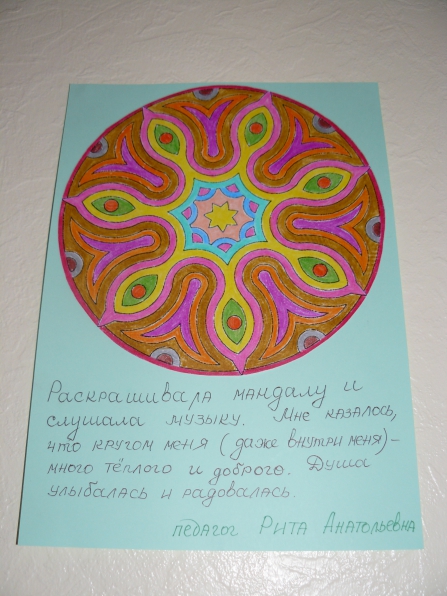 Раскрашивала мандалу и
слушала музыку. Мне казалось,
что кругом меня (даже внутри меня)-
много тёплого и доброго. Душа
улыбалась и радовалась.
педагог Рита Анатольевна